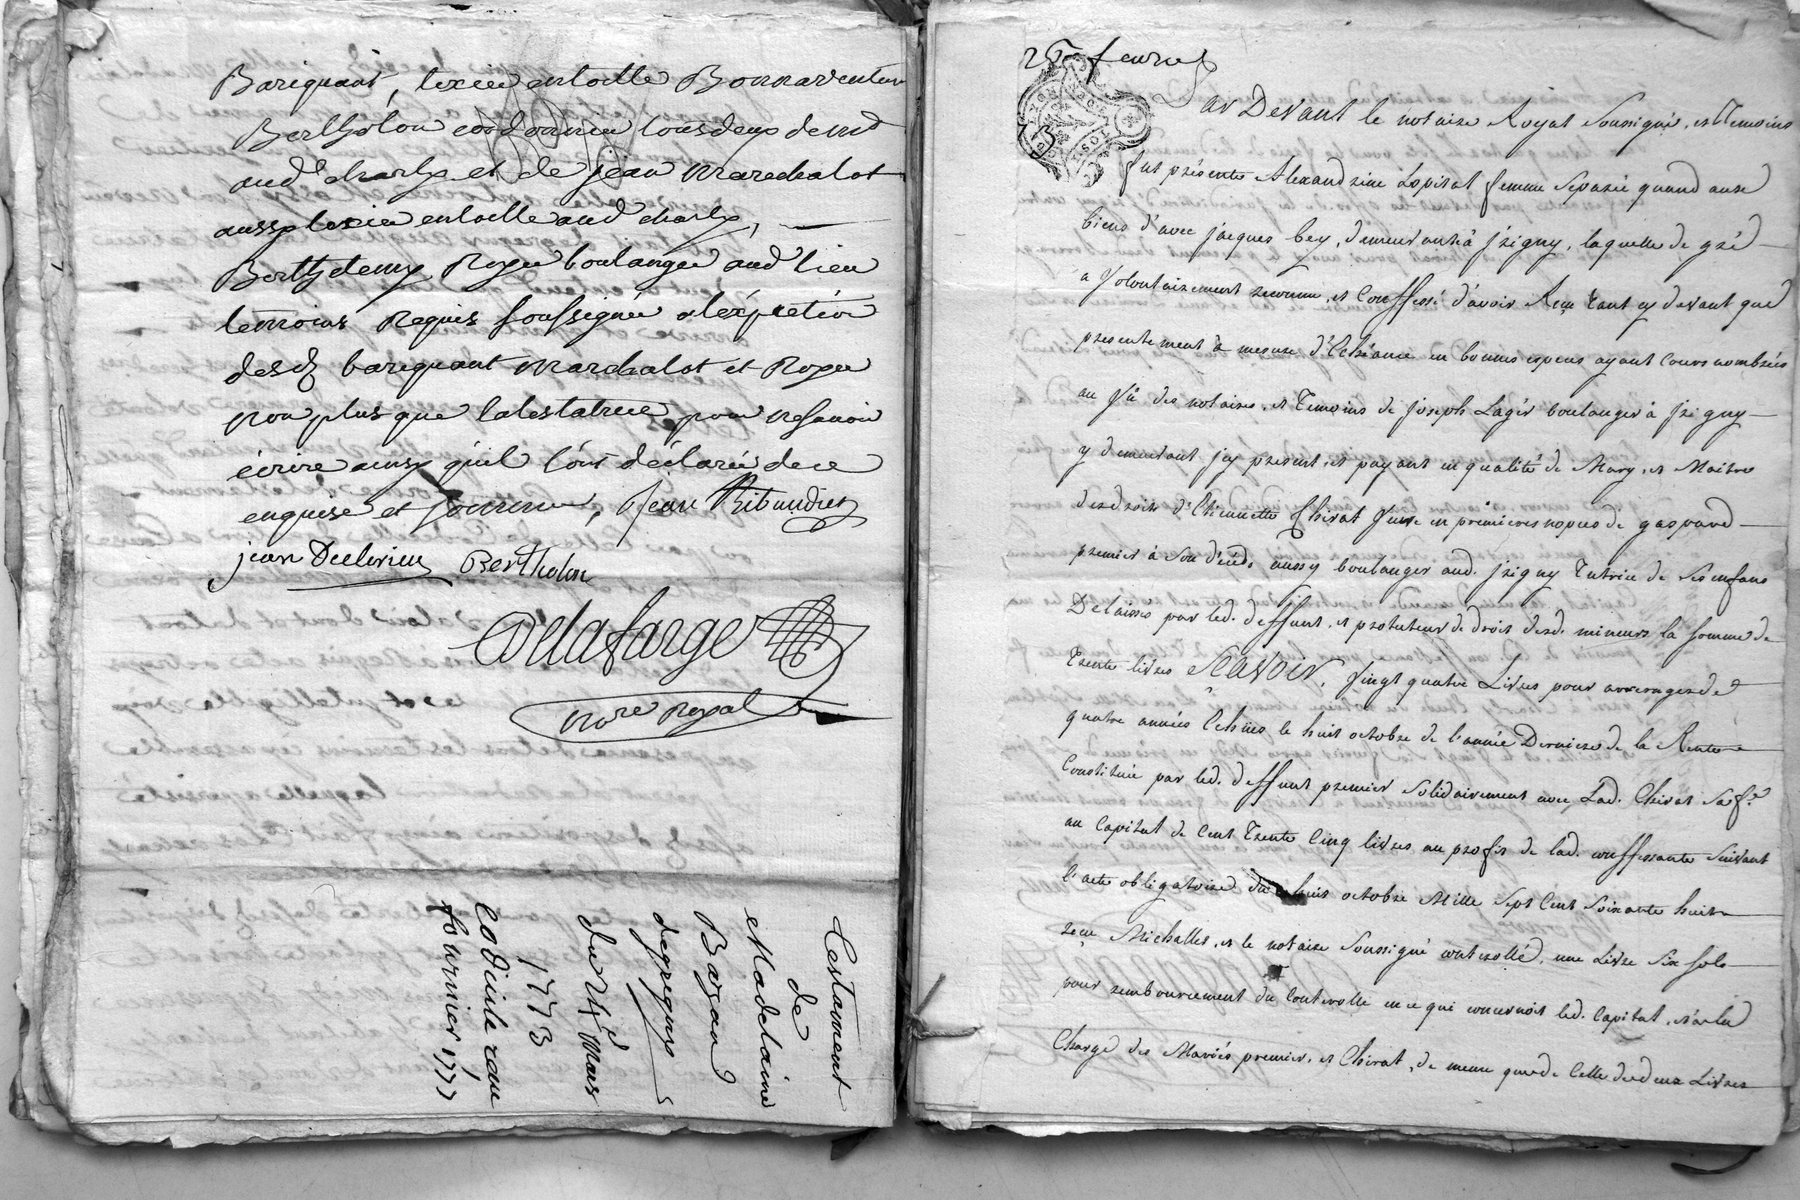 Bariquant, texier en toille Bonnaventure
Bertholon cordonnier tous deux demt
aud charly et de jean Marechalot
aussy texier en toille aud charly,
Berthelemy Roger boulanger aud lieu
temoins Requis soussignés a l'exception
desd bariquant Marechalot et Roger
non plus que la testatrice pour ne savoir
écrire ainsy qu'il l'ont déclaré de ce
enquise et sommés, Jean Ribaudier
jean Declerieu Berthelon
Delafarge
Nore Royal
Testament
de
Madelaine
Bazan
degregny
du 14 Mars
1773
fournier 1777
25 feurier
73
Par Devant le notaire Royal soussigné, et Temoins
fut présente Alexandrine Lopital femme separée quand aux
biens d'avec jacques bey, demeurante à jrigny, laquelle de gré
a Volontairement reconnu, et Confessé d'avoir Reçu tant cy devant que
presentement à mesure d'Echéance en bonnes especes ayant cours nombrées
au Vû des notaire, et Temoins de joseph Lagér boulanger à jrigny
y demeurant, jcy present, et payant en qualité de Mary, et Maitre
des droits d'Etiennette Chirat Veuve en premieres nopces de gaspard
premier à son décéd. aussy boulanger aud. jrigny Tutrice de ses enfans
Delaissés par led. deffunt, et protuteur de droit desd. mineurs la somme de
trente livres Scavoir, Vingt quatre Livres pour arrerages de
quatre années Echües le huit octobre de l'année Derniere de la Rente
Constituée par led. deffunt premier solidairement avec Lad. Chirat sa fe
au Capital de Cent Trente Cinq livres au profit de lad. confessante suivant
l'acte obligatoire du huit octobre Mille Sept Cent Soixante huit
reçu Michallet, et le notaire soussigné controllé, une Livre six sols
pour remboursement du Controlle en ce qui concernoit led. Capital, et à la
Charge des Mariés premier, et Chirat, de meme que de Celle de deux Livres